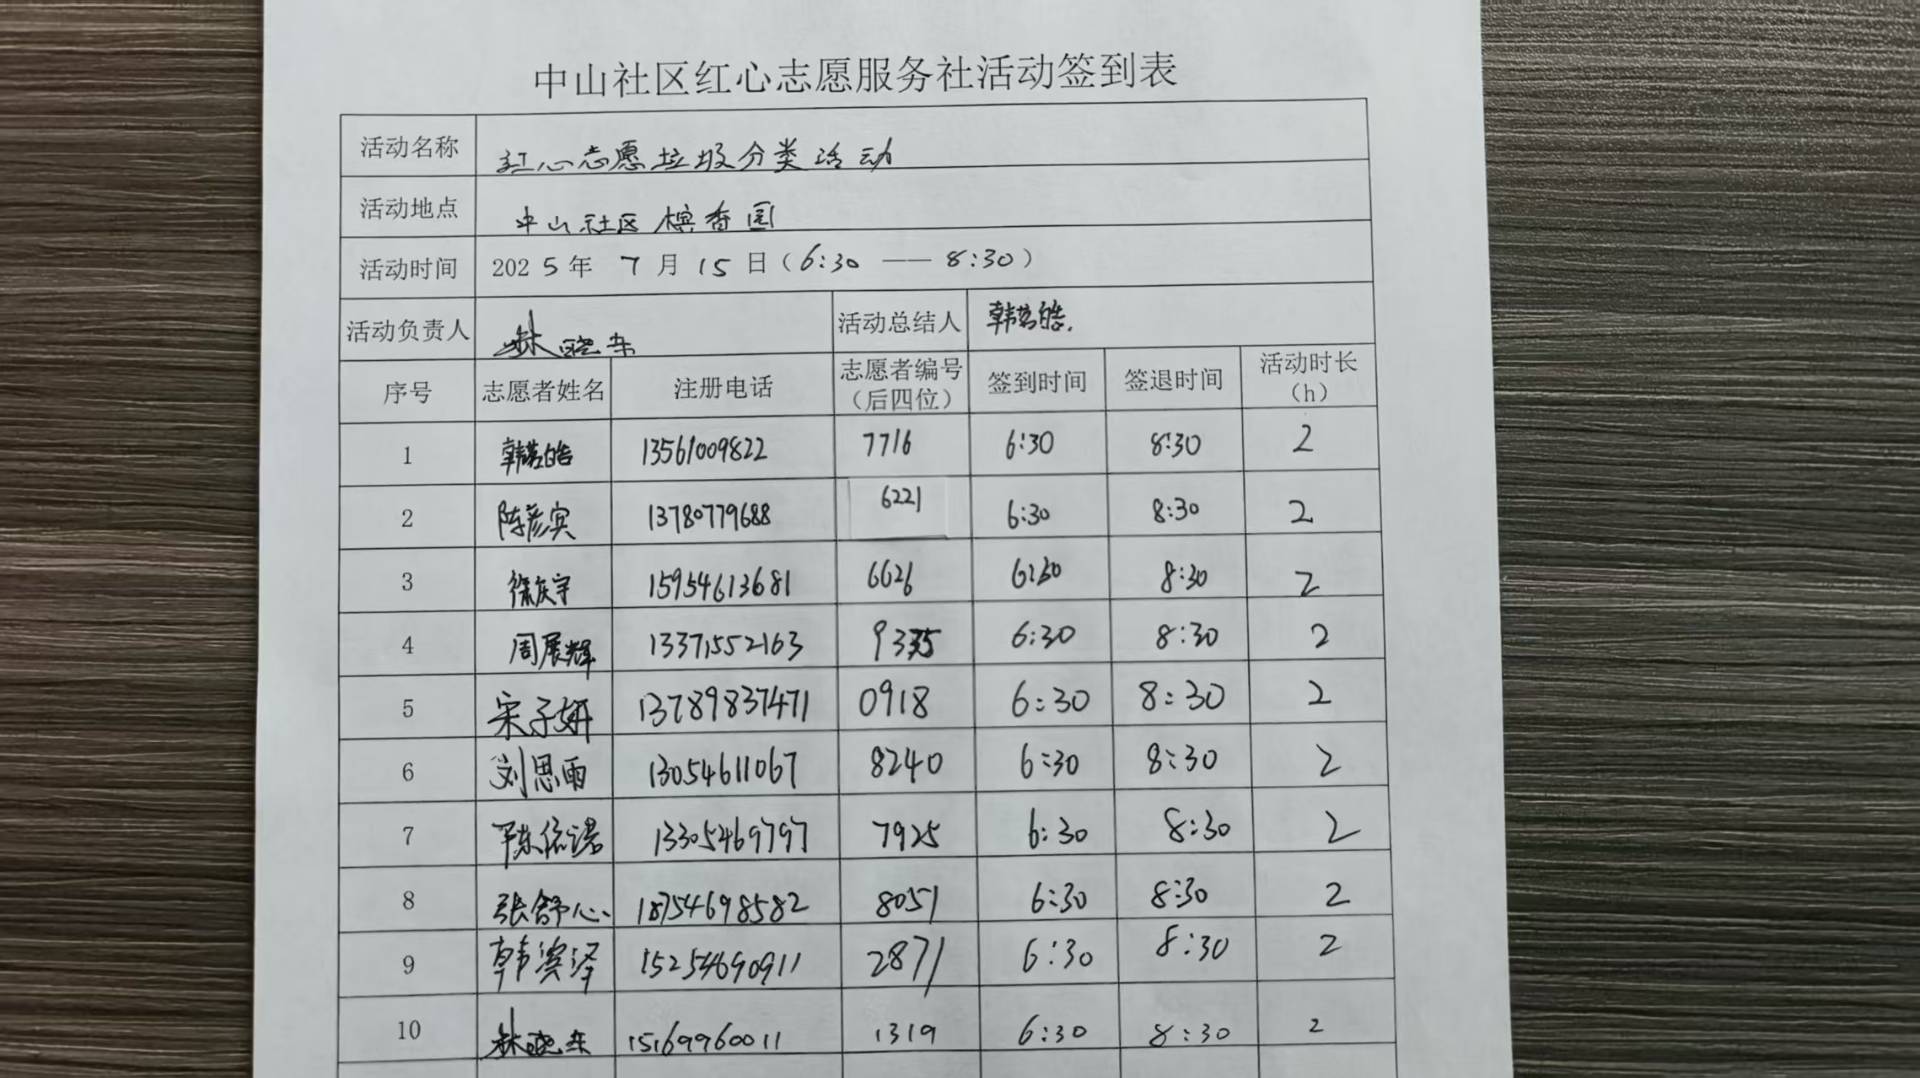 中山社区红心志愿服务社活动签到表
活动名称 红心志愿垃圾分类活动
活动地点 中山社区槟香园
活动时间 2025年 7月15日(6:30 —— 8:30)
活动负责人 晓东 活动总结人 韩茗皓
序号 志愿者姓名 注册电话 志愿者编号(后四位) 签到时间 签退时间 活动时长(h)
1 韩茗皓 13561009822 7716 6:30 8:30 2
2 陈彦宾 13780779688 6221 6:30 8:30 2
3 徐庆宇 15954613681 6626 6:30 8:30 2
4 周展辉 13371552163 9335 6:30 8:30 2
5 宋子妍 13789837471 0918 6:30 8:30 2
6 刘思雨 13054611067 8240 6:30 8:30 2
7 陈依诺 13305469797 7925 6:30 8:30 2
8 张舒心 18754698582 8051 6:30 8:30 2
9 韩滨泽 15254690911 2871 6:30 8:30 2
10 晓东 15169960011 1319 6:30 8:30 2